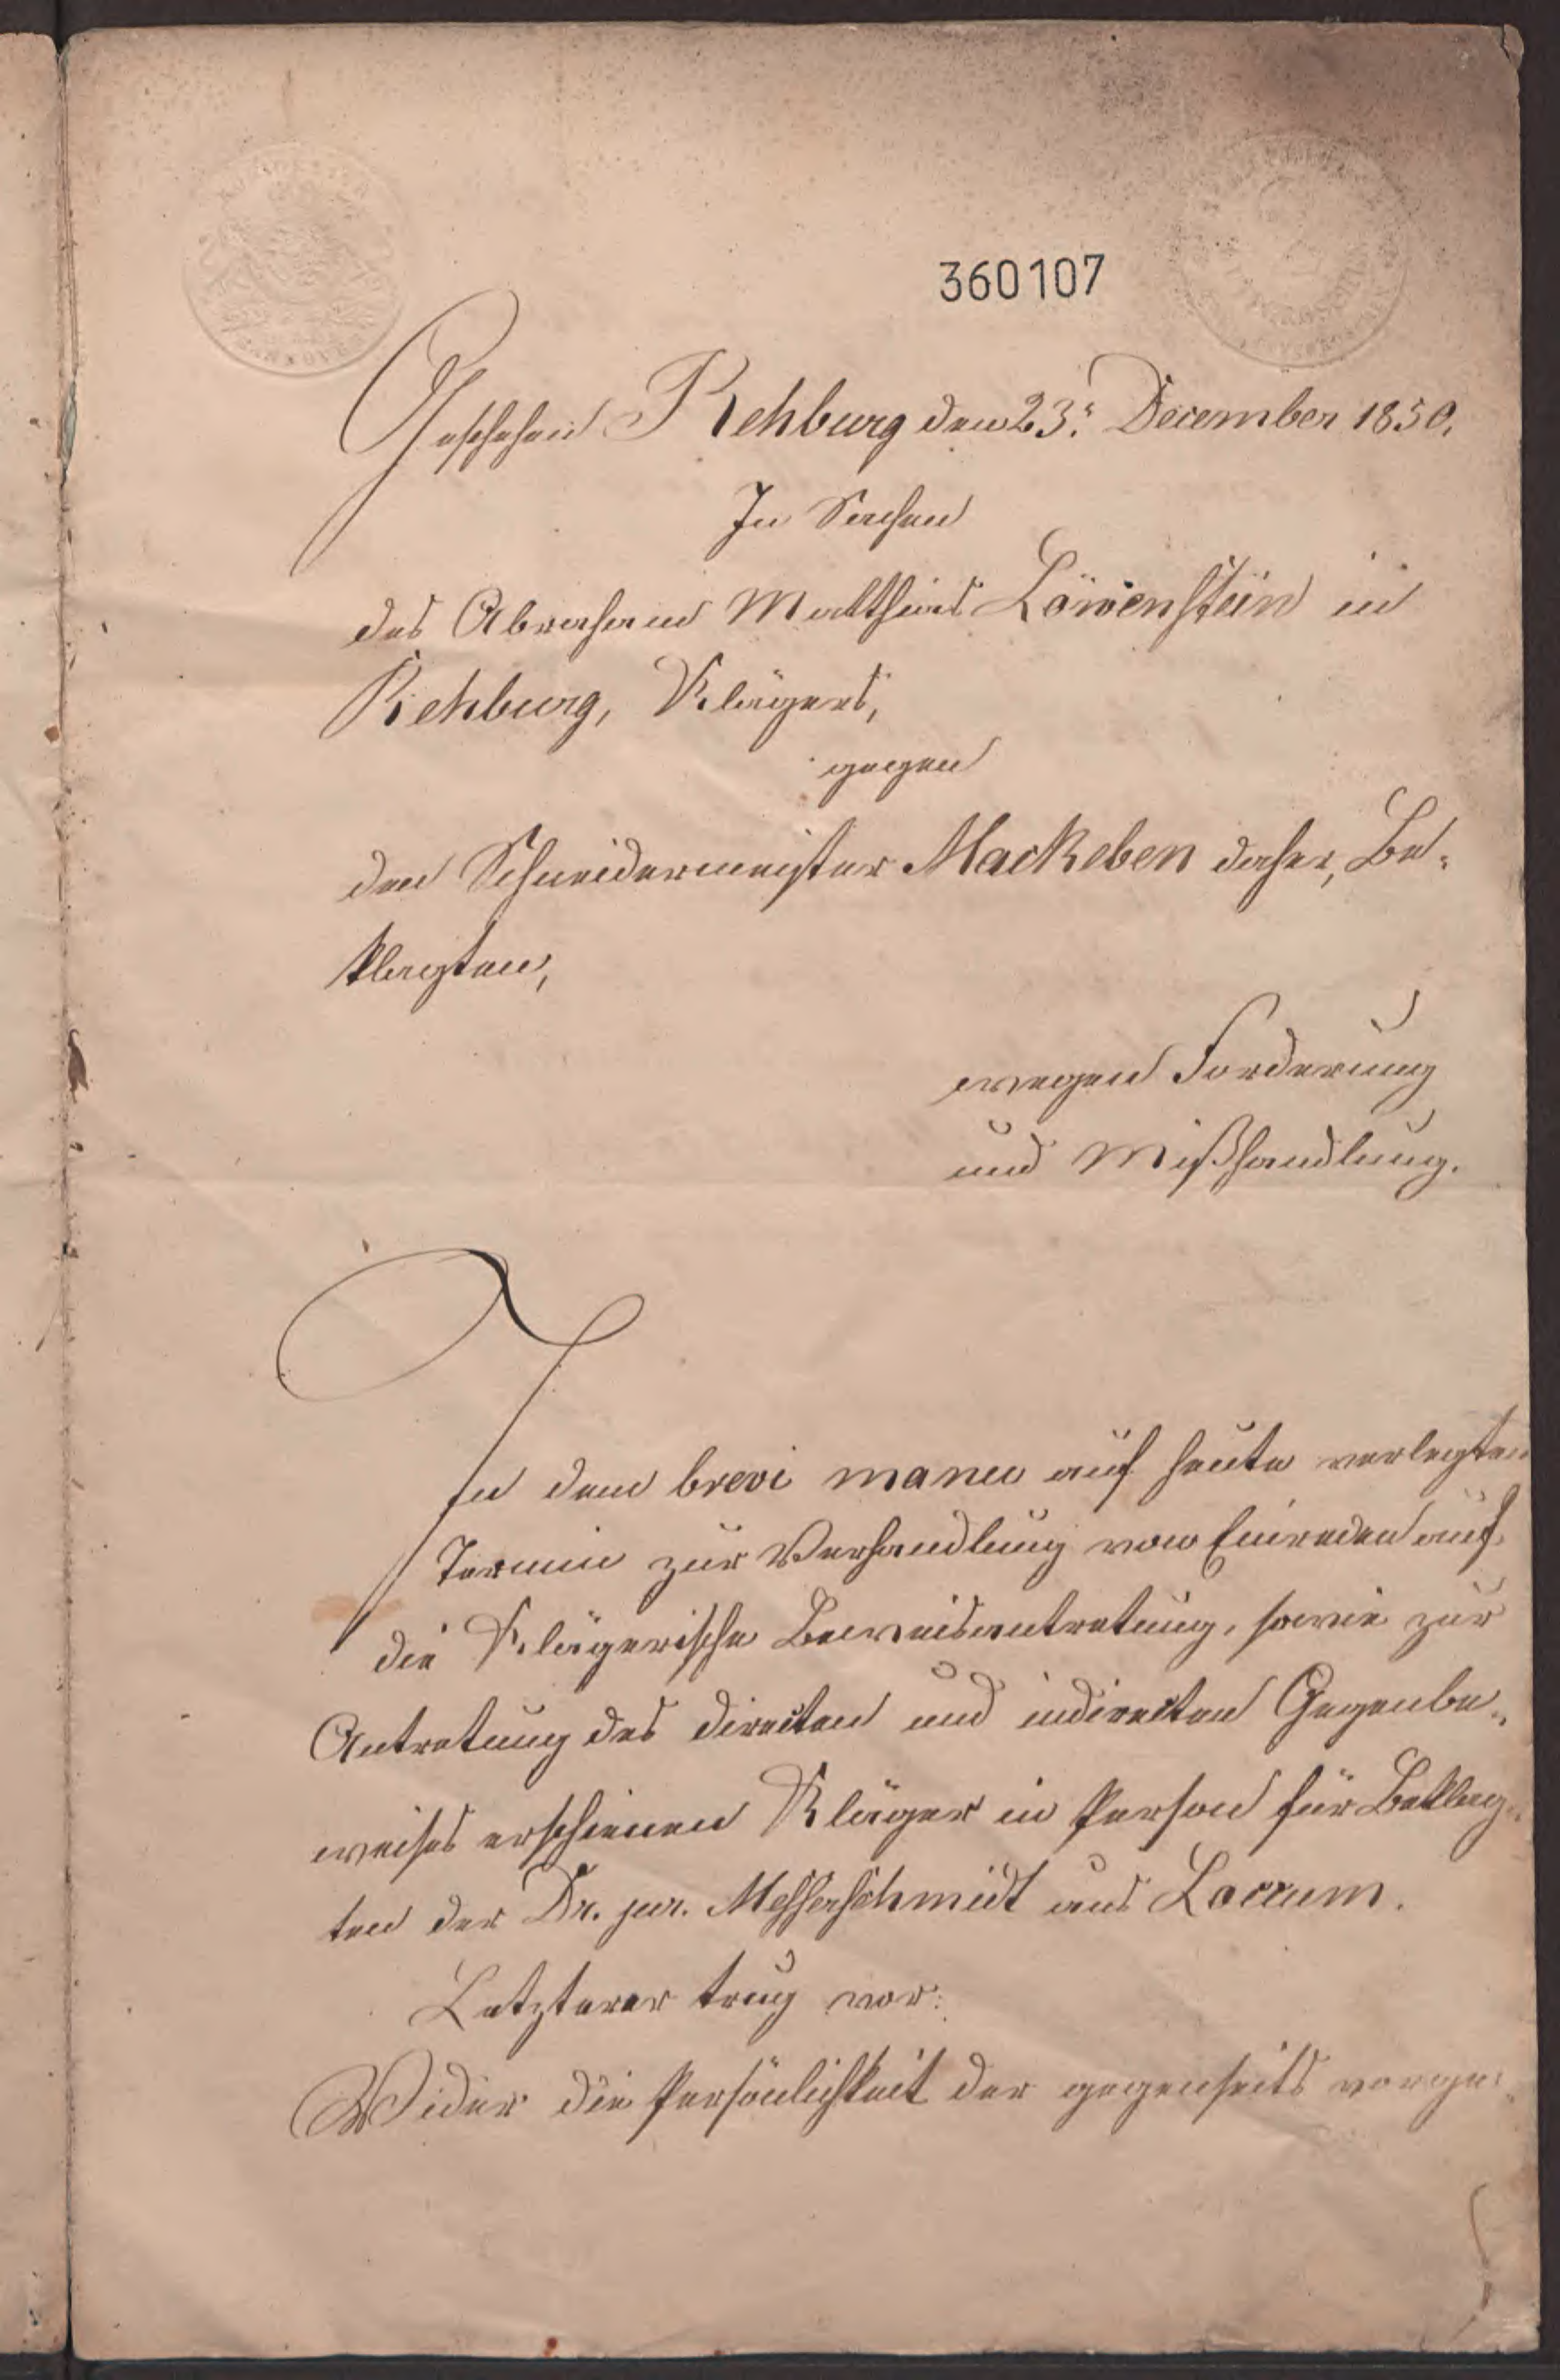 360107
Geschehen Rehburg den 23. December 1850.
In Sachen
des Abraham Matthias Löwenstein in
Rehburg, Klägers,
gegen
den Schneidermeister Mackeben daher, Be-
klagten,
wegen Forderung
und Mißhandlung.
In dem brevi manu auf heute verlegten
Termin zur Verhandlung von Einreden auf
die Klägerische Beweisantretung, sowie zur
Antretung des directen und indirecten Gegenbe-
weises erschienen Kläger in Person für Beklag-
ten der Dr. jur. Messerschmidt aus Loccum.
Letzterer trug vor:
Wider die Persönlichkeit der gegenseits vorge-